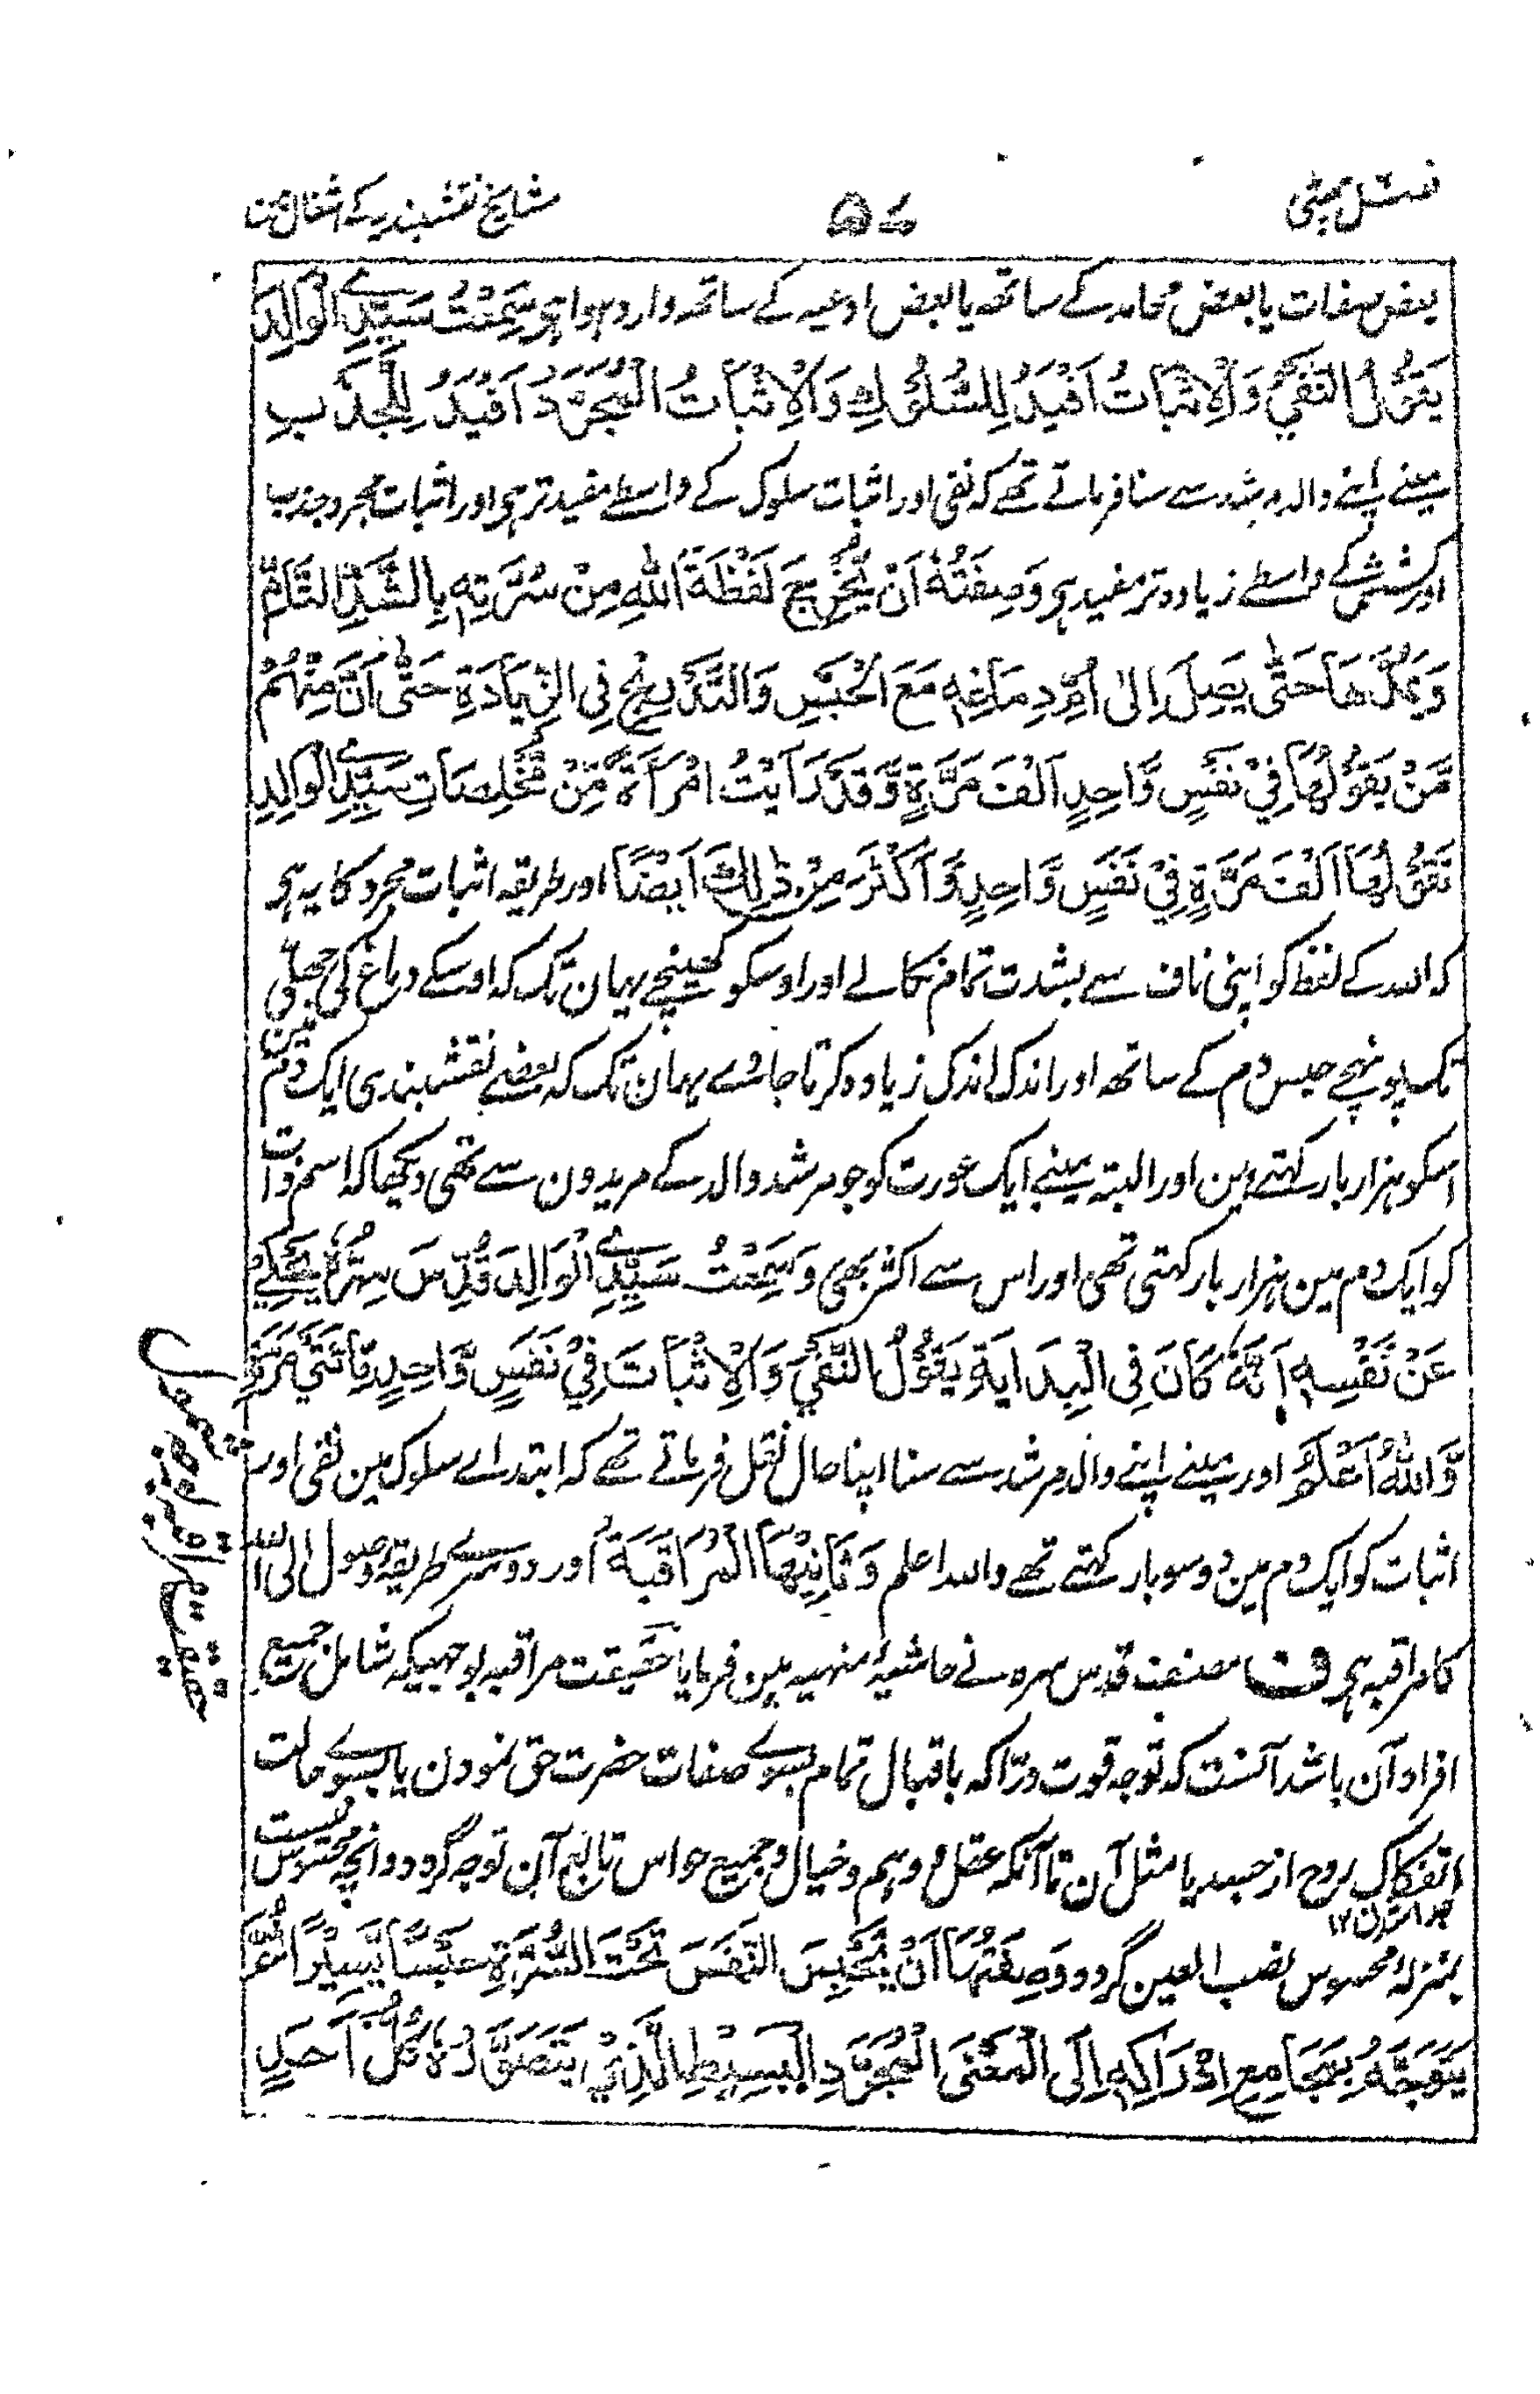 فصل چھٹی
۵۷
مشایخ نقشبندیہ کے اشغال میں
بعض صفات یا بعض محامد کے ساتھ یا بعض ادعیہ کے ساتھ وارد ہوا ہی سَمِعْتُ سَیِّدِی الْوَالِدَ
یَقُوْلُ النَّفْیُ وَالْاِثْبَاتُ اَفْیَدُ لِلسُّلُوْكِ وَالْاِثْبَاتُ الْمُجَرَّدُ اَفْیَدُ لِلْجَذْبِ
مینے اپنے والد مرشد سے سنا فرماتے تھے کہ نفی اور اثبات سلوک کے واسطے مفید تر ہی اور اثبات مجرد جذب
اور کشش کے واسطے زیادہ تر مفید ہی وَصِفَتُهٗ اَنْ یُّخْرِجَ لَفْظَةَ اللّٰهِ مِنْ سُرَّتِهٖ بِالشَّدِّ التَّامِّ
وَیَمُدَّهَا حَتّٰی یَصِلَ اِلٰی اُمِّ دِمَاغِهٖ مَعَ الْحَبْسِ وَالتَّدْرِیْجِ فِی الزِّیَادَةِ حَتّٰی اَنَّ مِنْهُمْ
مَّنْ یَقُوْلُهَا فِیْ نَفَسٍ وَّاحِدٍ اَلْفَ مَرَّةٍ وَّقَدْ رَاَیْتُ امْرَاَةً مِّنْ مُّخْلِصَاتِ سَیِّدِی الْوَالِدِ
تَقُوْلُهَا اَلْفَ مَرَّةٍ فِیْ نَفَسٍ وَّاحِدٍ وَّاَكْثَرَ مِنْ ذٰلِكَ اَیْضًا اور طریقہ اثبات مجرد کا یہ ہی
کہ اللہ کے لفظ کو اپنی ناف سے بشدت تمام نکالے اور اوسکو کھینچے یہان تک کہ اوسکے دماغ کی جھلّی
تک پہونچے حبس دم کے ساتھ اور اندک اندک زیادہ کرتا جاوے یہان تک کہ بعضے نقشبندی ایک دم مین
اسکو ہزار بار کہتے ہین اور البتہ مینے ایک عورت کو جو مرشد والد کے مریدون سے تھی دیکھا کہ اسم ذات
کو ایک دم مین ہزار بار کہتی تھی اور اس سے اکثر بھی وَسَمِعْتُ سَیِّدِی الْوَالِدَ قُدِّسَ سِرُّهٗ یَحْكِیْ
عَنْ نَّفْسِهٖ اَنَّهٗ كَانَ فِی الْبِدَایَةِ یَقُوْلُ النَّفْیَ وَالْاِثْبَاتَ فِیْ نَفَسٍ وَّاحِدٍ مِّائَتَیْ مَرَّةٍ
وَّاللّٰهُ اَعْلَمُ اور مینے اپنے والد مرشد سے سنا اپنا حال نقل فرماتے تھے کہ ابتداے سلوک مین نفی اور
اثبات کو ایک دم مین دو سو بار کہتے تھے واللہ اعلم وَثَانِیْهَا الْمُرَاقَبَةُ اور دوسرے طریقہ وصول الی اللہ
کا مراقبہ ہی ف مصنف قدس سرہ نے حاشیۂ منہیہ مین فرمایا حقیقت مراقبہ بوجہیکہ شامل جمیع
افراد آن باشد آنست کہ توجہ قوت درّاکہ باقبال تمام بسوے صفات حضرت حق نمودن یا بسوے حالت
انفکاک روح از جسد یا مثل آن تا آنکہ عقل و وہم و خیال و جمیع حواس تابع آن توجہ گردد و آنچہ محسوس نیست
جدا شدن ۱۲
بمنزلۂ محسوس نصب العین گردد وَصِفَتُهَا اَنْ یَّحْبِسَ النَّفَسَ تَحْتَ السُّرَّةِ حَبْسًا یَّسِیْرًا ثُمَّ
یَتَوَجَّهُ بِمَجَامِعِ اِدْرَاكِهٖ اِلَی الْمَعْنَی الْمُجَرَّدِ الْبَسِیْطِ الَّذِیْ یَتَصَوَّرُهٗ كُلُّ اَحَدٍ